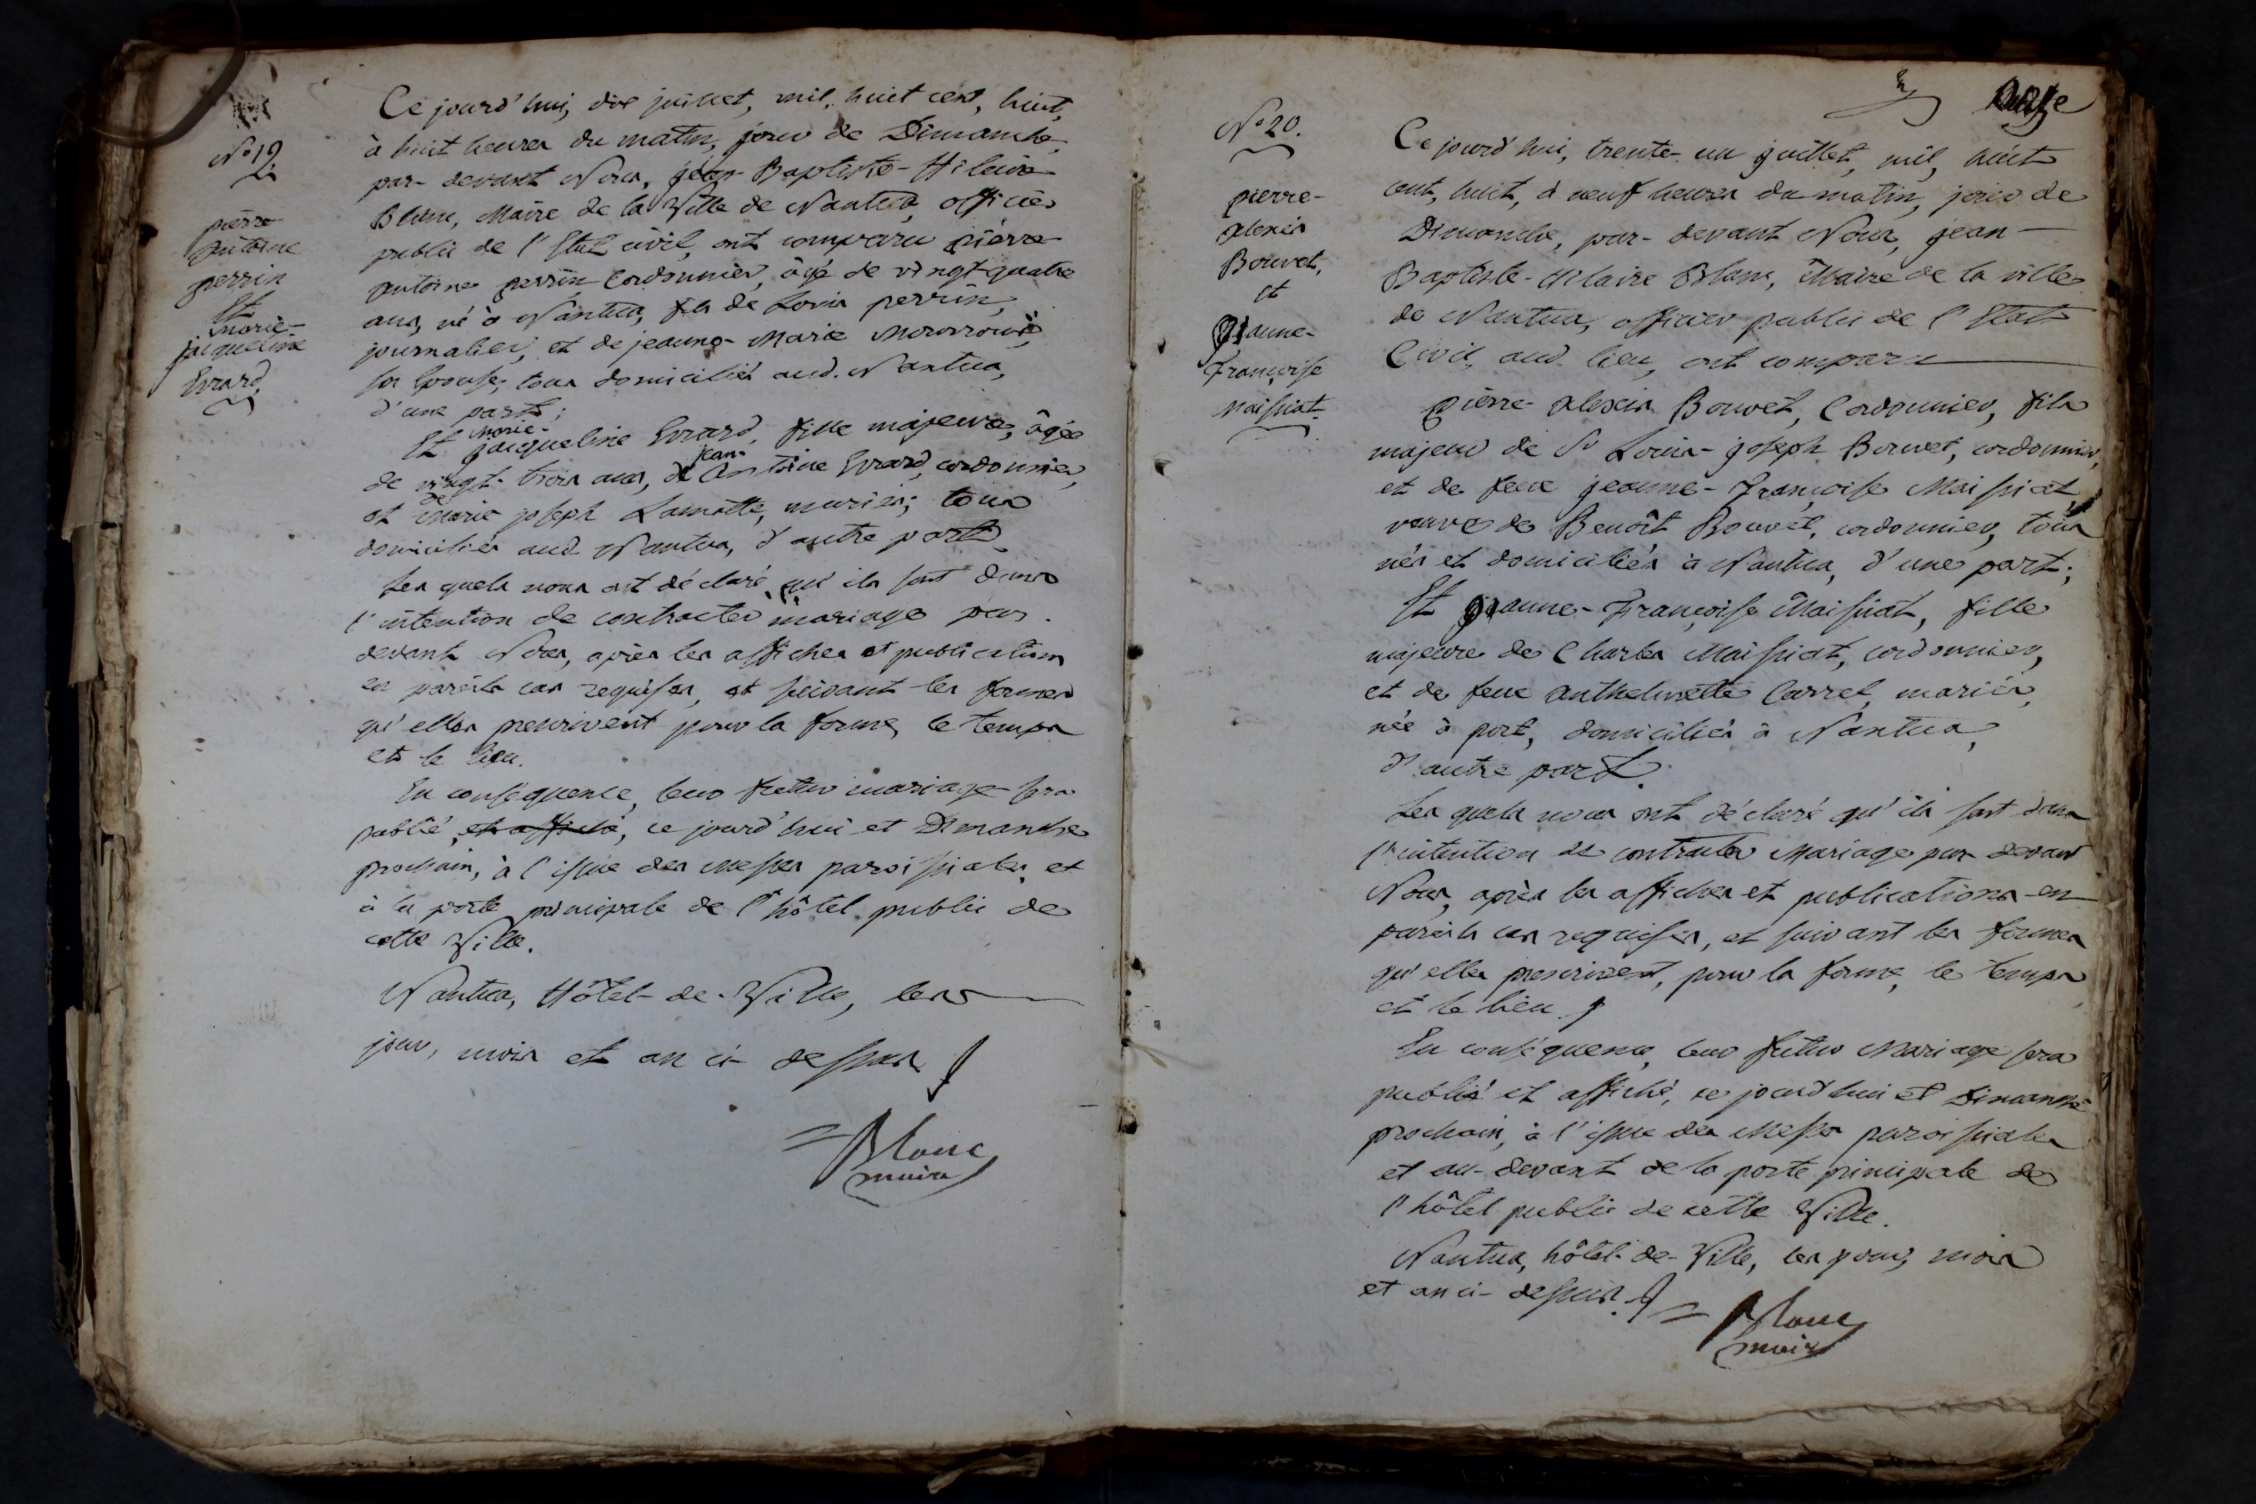 N° 19
pierre
Antoine
perrin
Et
marie-
jacqueline
Evrard.
Ce jourd'hui, dix juillet, mil, huit cent, huit,
à huit heures du matin, jour de Dimanche,
par-devant Nous, jean-Baptiste-Hilaire
Blanc, Maire de la Ville de Nantua, officier
public de l'Etat civil, ont comparu pierre
antoine perrin Cordonnier, âgé de vingt-quatre
ans, né à Nantua, fils de Louis perrin,
journalier, et de jeanne-Marie
son Epouse, tous domiciliés aud. Nantua,
d'une part;
Et marie-jacqueline Evrard, fille majeure, âgée
de vingt-trois ans, de jean-Antoine Evrard, cordonnier,
et de Marie joseph Lamotte, mariés; tous
domiciliés aud Nantua, d'autre part.
Les quels nous ont déclaré, qu'ils sont dans
l'intention de contracter mariage par-
devant Nous, après les affiches et publications
en pareils cas requises, et suivant les formes
qu'elles prescrivent pour la forme, le temps
et le lieu.
En conséquence, leur futur mariage sera
publié, et affiché, ce jourd'hui et Dimanche
prochain, à l'issue des Messes paroissiales, et
à la porte principale de l'hôtel public de
cette Ville.
Nantua, Hôtel-de-Ville, les
jour, mois et an ci-dessus.
Blanc
maire
onze
N° 20.
pierre-
alexis
Bouvet,
et
jeanne-
Françoise
Maissiat
Ce jourd'hui, trente-un juillet, mil, huit
cent, huit, à neuf heures du matin, jour de
Dimanche, par-devant Nous, jean-
Baptiste-Hilaire Blanc, Maire de la ville
de Nantua, officier public de l'Etat
Civil, aud. lieu, ont comparu
pierre-alexis Bouvet, Cordonnier, fils
majeur de Sr Louis-joseph Bouvet, cordonnier,
et de feue jeanne-Françoise Maissiat,
veuve de Benoît Bouvet, cordonnier, tous
nés et domiciliés à Nantua, d'une part;
Et jeanne-Françoise Maissiat, fille
majeure de Charles Maissiat, cordonnier,
et de feue anthelmette Carrel, mariés,
née à port, domiciliés à Nantua,
d'autre part.
Les quels nous ont déclaré qu'ils sont dans
l'intention de contracter Mariage par-devant
Nous, après les affiches et publications en
pareils cas requises, et suivant les formes
qu'elles prescrivent, pour la forme, le temps
et le lieu.
En conséquence, leur futur Mariage sera
publié et affiché, ce jourd'hui et Dimanche
prochain, à l'issue des Messes paroissiales
et au-devant de la porte principale de
l'hôtel public de cette Ville.
Nantua, hôtel-de-Ville, les jour, mois
et an ci-dessus.
Blanc
maire